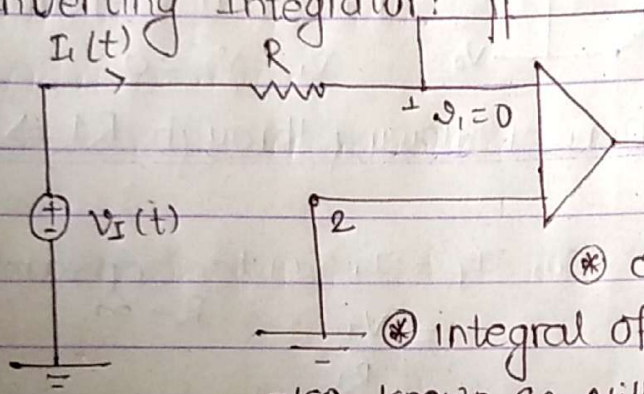 nverting Integrator:
I₁(t)
R
1 v₁=0
+
-
V_I(t)
2
⊛ c
⊛ integral of